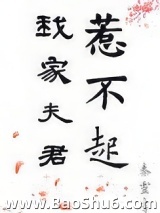 惹不起
我家夫君
秦灵书
www.BaoShu6.com